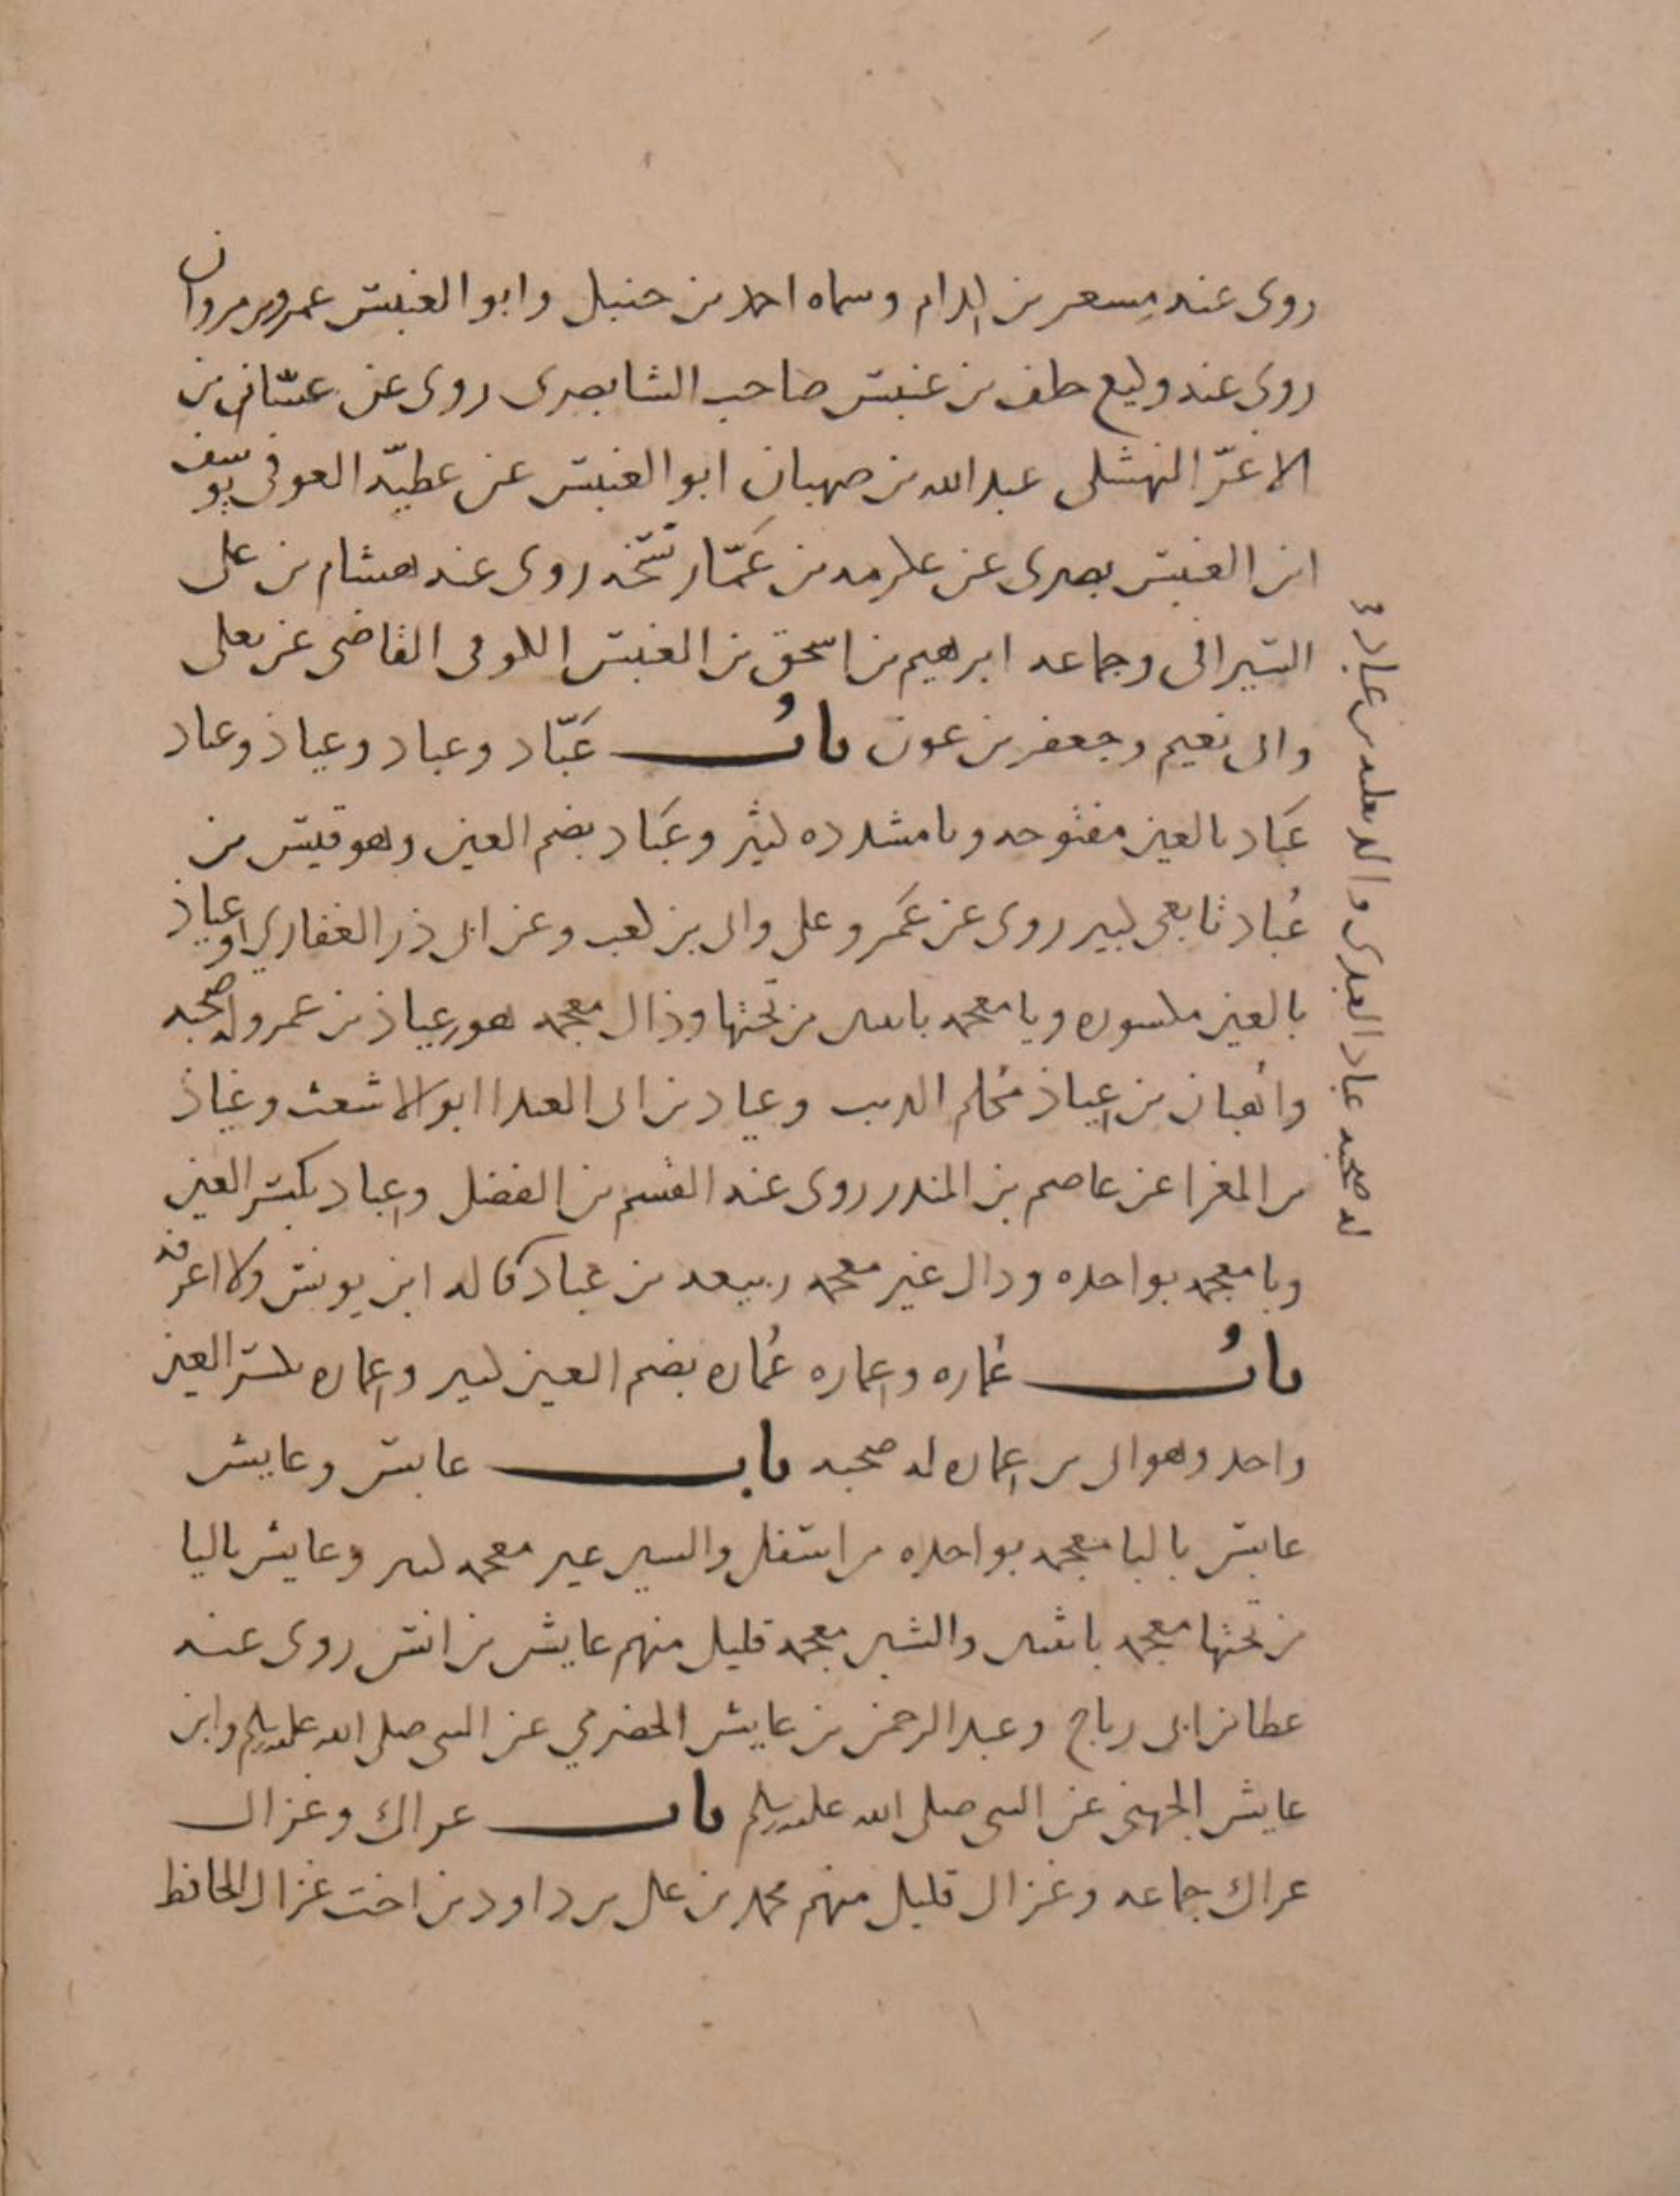 روى عنه مِسعر بن كِدام وسماه احمد بن حنبل وابو العنبس عمرو بن مروان
روى عنه وكيع خلف بن عنبس صاحب السابرى روى عن غسّان بن
الاغرّ النهشلى عبد الله بن صهبان ابو العنبس عن عطيّه العوفى يوسف
ابن العنبس بصرى عن عكرمه بن عَمّار نسّخه روى عنه هشام بن على
السيرافى وجماعه ابرهيم بن اسحق بن العنبس الكوفى القاضى عن يعلى
وابى نعيم وجعفر بن عون بابُ عَبّاد وعباد وعياذ وعباد
عَبّاد بالعين مفتوحه وبا مشدده كثير وعُبَاد بضم العين وهو قيس بن
عُباد تابعى كبير روى عن عُمَر وعلى وابى بن كعب وعن ابى ذر الغفارى وعياذ
بالعين مكسوره ويا معجمه باثنين من تحتها وذال معجمه هو عياذ بن عمرو له صحبه
واُهبان بن عِياذ مُكلم الذيب وعياذ بن ابى العيذ ابو الاشعث وعياذ
بن المغرا عن عاصم بن المنذر روى عنه القسم بن الفضل وعِباد بكسر العين
وبا معجمه بواحده ودال غير معجمه ربيعه بن عِباد قاله ابن يونس ولا اعرفه
بابُ عُماره وعِماره عُماره بضم العين كثير وعِماره بكسر العين
واحد وهو ابى بن عِماره له صحبه باب عابس وعايش
عابس بالبا معجمه بواحده من اسفل والسين غير معجمه كثير وعايش باليا
من تحتها معجمه باثنتين والشين معجمه قليل منهم عايش بن انس روى عنه
عطا بن ابى رباح وعبد الرحمن بن عايش الحضرمي عن النبى صلى الله عليه وسلم وابن
عايش الجهنى عن النبى صلى الله عليه وسلم باب عراك وغزال
عراك جماعه وغزال قليل منهم محمد بن على بن داود بن اخت غزال الحافظ
عباد العبدى والد ثعلبه بن عباد
له صحبه